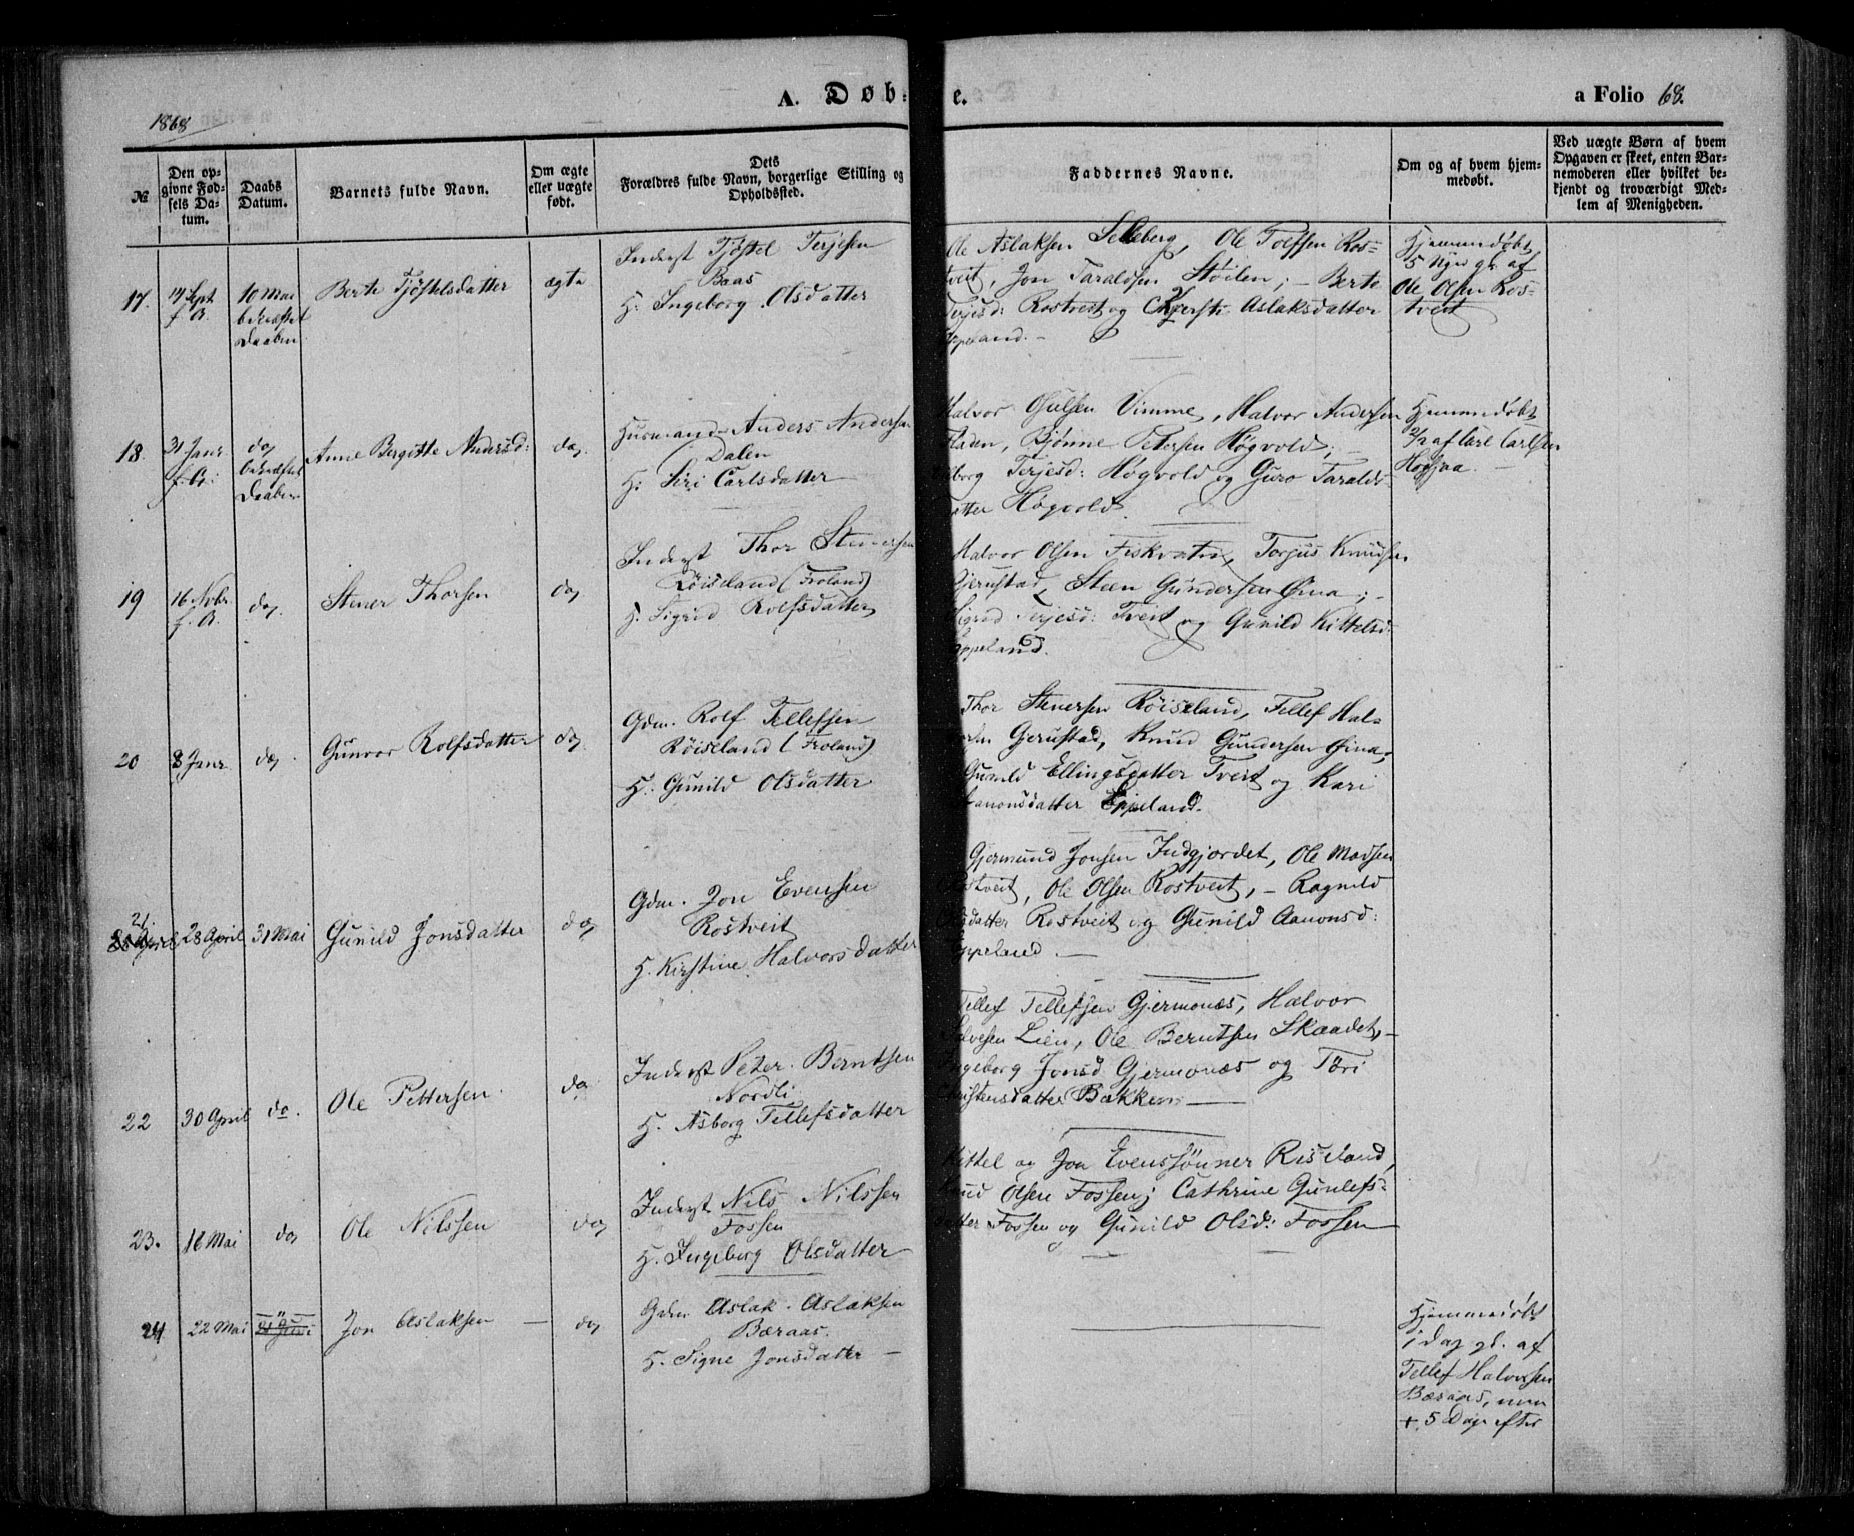 A. Døb-
e.
a Folio 68.
1868
№
Den op-
givne Fød-
sels Da-
tum.
Daabs
Datum.
Barnets fulde Navn.
Om ægte
eller uægte
født.
Dets
Forældres fulde Navn, borgerlige Stilling og
Opholdssted.
Faddernes Navne.
Om og af hvem hjem-
medøbt.
Ved uægte Børn af hvem
Opgaven er skeet, enten Bar-
nemoderen eller hvilket be-
kjendt og troværdigt Med-
lem af Menigheden.
17.
Sept
f. A.
10 Mai
bekræftet
Daaben
Berte Tjøstelsdatter
ægte
Inderst Tjøstel Terjesen
Baas
H. Ingeborg Olsdatter
Ole Aslaksen Selleberg, Ole Tolfsen Ros-
tveit, Jon Taraldsen Støilen; – Berte
Terjesd: Rostveit og Aslaksdatter
Eppeland. –
Hjemmedøbt
af
Ole Olsen Ros-
tveit
18
31 Janr
f. A:
do
bekræftet
Daaben
Anne Bergitte Andersd:
do,
Husmand Anders Andersen
Dalen
H: Siri Carlsdatter
Halvor Osulsen Vimme, Halvor Andersen
Bjønne Petersen Høgvold;
Terjesd: Høgvold og Guro Taralds-
datter Høgvold.
Hjemmedøbt
af Carl Carlsen
19
16 Nvbr
f. A.
do.
Stener Thorsen
do
Inderst Thor Stenersen
Røiseland (Froland)
H. Sigrid Rolfsdatter
Halvor Olsen Fiskvatn, Torjus Knudsen
Gjerustad, Steen Gundersen Øina; –
Sigrid Terjesd: Tveit og Gunild Kittelsd:
Eppeland.
20
8 Janr
do,
Gunvor Rolfsdatter
do,
Gdm. Rolf Tellefsen
Røiseland (Froland)
H: Gunild Olsdatter
Thor Stenersen Røiseland, Tellef Hal-
Gjerustad, Knud Gundersen Øina,
Gunild Ellingsdatter Tveit og Kari
Aanonsdatter Eppeland.
21.
28 April
31 Mai
Gunild Jonsdatter
do
Gdm. Jon Evensen
Rostveit
H. Kirstine Halvorsdatter
Gjermund Jonsen Indgjordet, Ole Madsen
Rostveit, Ole Olsen Rostveit, – Ragnild
datter Rostveit og Gunild Aanonsd:
Eppeland. –
22
30 April
do.
Ole Pettersen
do
Inderst Peter Berntsen
Nordli
H. Asborg Tellefsdatter
Tellef Tellefsen Gjermonæs, Halvor
Lien, Ole Berntsen Skaadet, –
Ingeborg Jonsd Gjermonæs og Tori
Christensdatter Bakken –
23.
16 Mai
do
Ole Nilssen
do
Inderst Nils Nilssen
Fossen
H. Ingeborg Olsdatter
Kittel og Jon Evenssønner Riseland,
Knud Olsen Fossen; Cathrine Gunlefs-
datter Fossen og Gunild Olsd: Fossen
24
22 Mai
"
Jon Aslaksen –
do
Gdm Aslak Aslaksen
Bæraas.
H. Signe Jonsdatter –
Hjemmedøbt
1 Dag gl. af
Tellef Halvorsen
Bæraas, men
+ 5 Dage efter